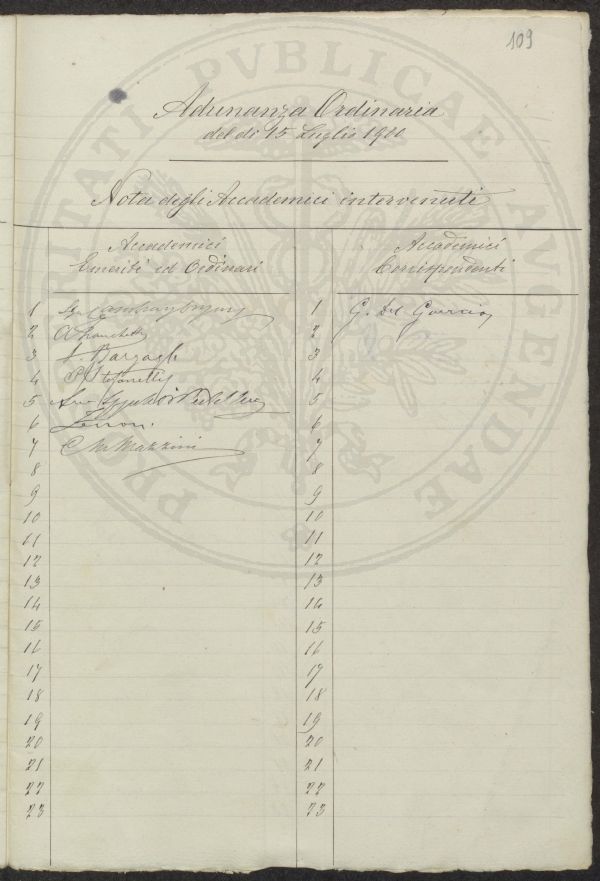 109
Adunanza Ordinaria
del dì 15 Luglio 1900
Nota degli Accademici intervenuti
Accademici
Emeriti ed Ordinari
1
2 A Franchetti
3 Bargagli
4 P. Stefanelli
5
6
7 C M Mazzini
8
9
10
11
12
13
14
15
16
17
18
19
20
21
22
23
Accademici
Corrispondenti
1 G. Del Guercio
2
3
4
5
6
7
8
9
10
11
12
13
14
15
16
17
18
19
20
21
22
23
PROSPERITATI PVBLICAE AVGENDAE